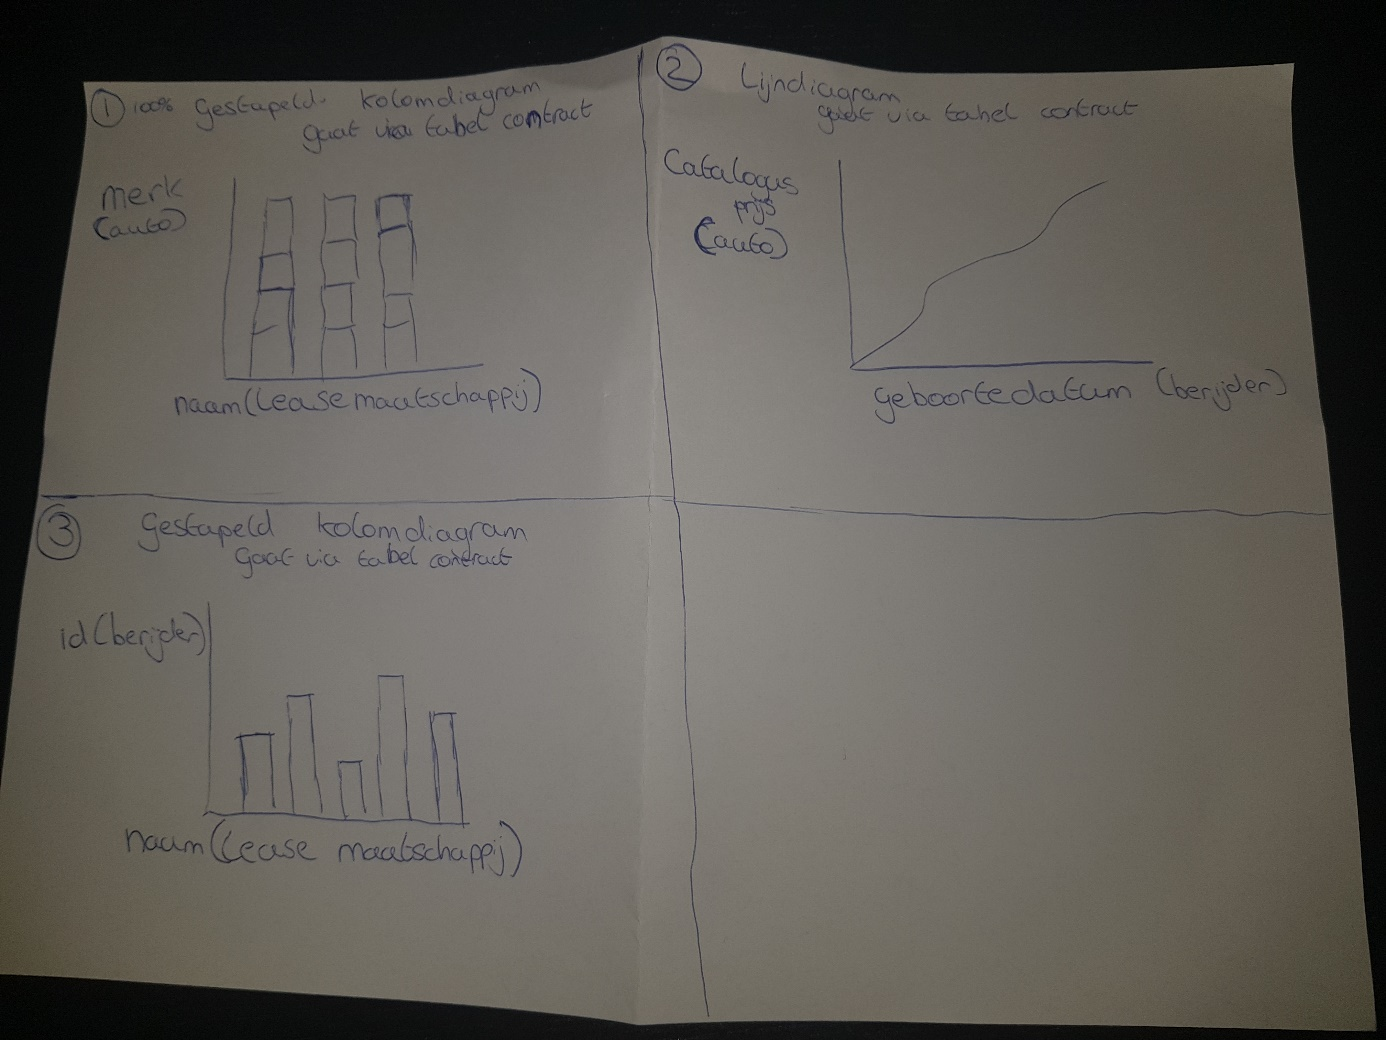 1 100% Gestapeld kolomdiagram
gaat via tabel contract
merk
(auto)
naam (Lease maatschappij)
2 Lijndiagram
gaat via tabel contract
Catalogus
prijs
(auto)
geboortedatum (berijder)
3 Gestapeld kolomdiagram
Gaat via tabel contract
id (berijder)
naam (Lease maatschappij)